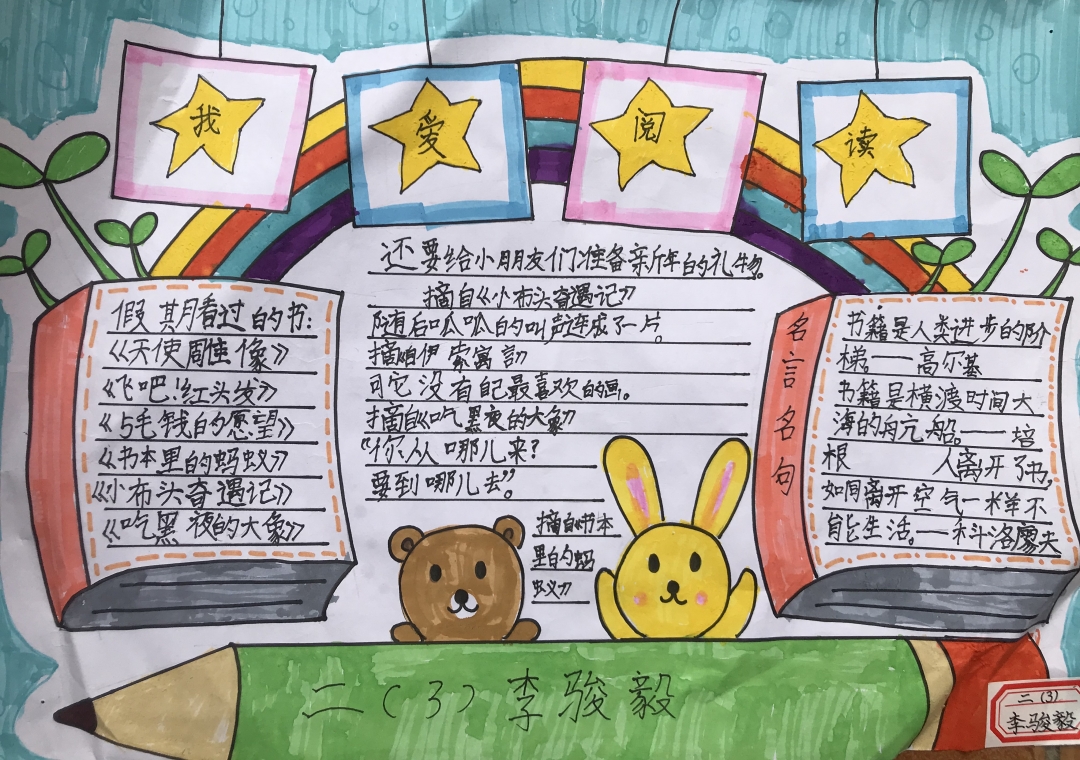 我 爱 阅 读
假期看过的书:
《天使雕像》
《飞吧!红头发》
《5毛钱的愿望》
《书本里的蚂蚁》
《小布头奇遇记》
《吃黑夜的大象》
还要给小朋友们准备新年的礼物。
摘自《小布头奇遇记》
随后呱呱的叫声连成了一片。
摘自伊索寓言
可它没有自己最喜欢的画。
摘自《吃黑夜的大象》
“你从哪儿来?
要到哪儿去”。
摘自《书本
里的蚂
蚁》
名言名句
书籍是人类进步的阶
梯。——高尔基
书籍是横渡时间大
海的航船。——培
根 人离开了书,
如同离开空气一样不
能生活。——科洛廖夫
二(3)李骏毅
二(3)
李骏毅